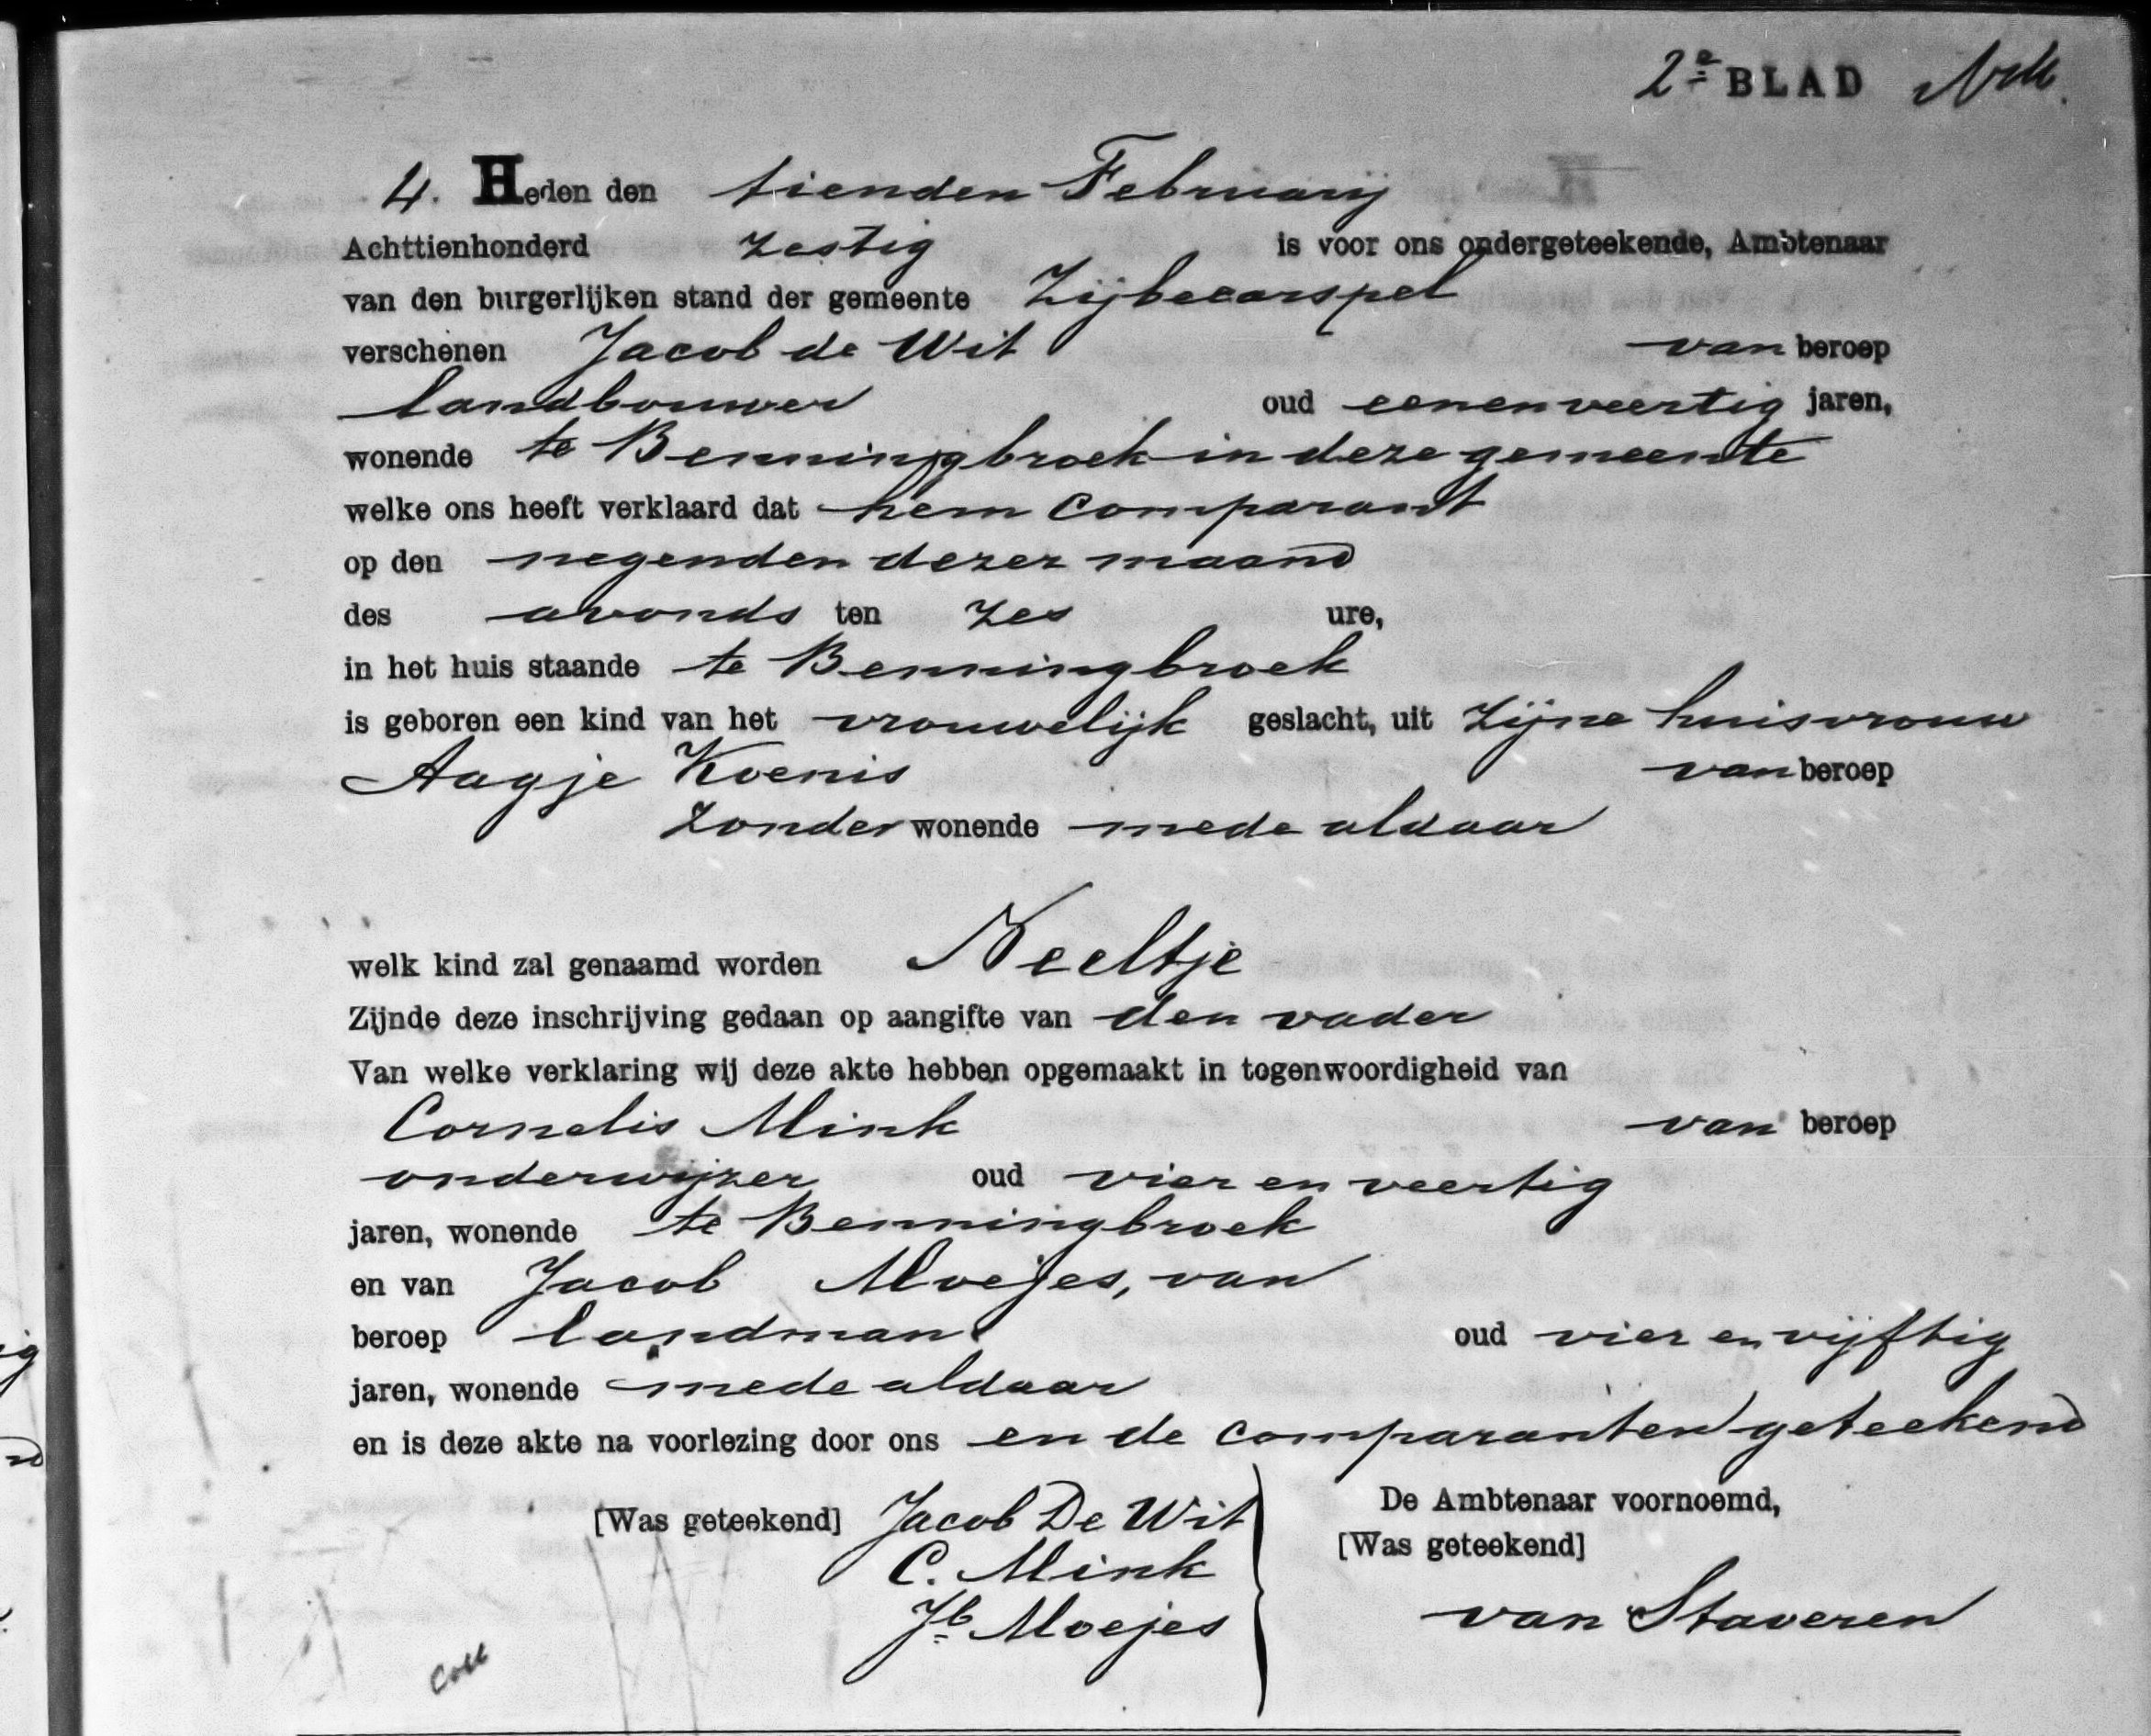 2e BLAD
4. Heden den tienden Februarij
Achttienhonderd zestig is voor ons ondergeteekende, Ambtenaar
van den burgerlijken stand der gemeente Zijbecarspel
verschenen Jacob de Wit van beroep
landbouwer oud eenenveertig jaren,
wonende te Benningbroek in deze gemeente
welke ons heeft verklaard dat hem Comparant
op den negenden dezer maand
des avonds ten zes ure,
in het huis staande te Benningbroek
is geboren een kind van het vrouwelijk geslacht, uit zijne huisvrouw
Aagje Koenis van beroep
zonder wonende mede aldaar
welk kind zal genaamd worden Neeltje
Zijnde deze inschrijving gedaan op aangifte van den vader
Van welke verklaring wij deze akte hebben opgemaakt in tegenwoordigheid van
Cornelis Mink van beroep
onderwijzer oud vier en veertig
jaren, wonende te Benningbroek
en van Jacob Moejes, van
beroep landman oud vier en vijftig
jaren, wonende mede aldaar
en is deze akte na voorlezing door ons en de comparanten geteekend
[Was geteekend] Jacob De Wit
C. Mink
Jb Moejes
De Ambtenaar voornoemd,
[Was geteekend]
van Staveren
Coll